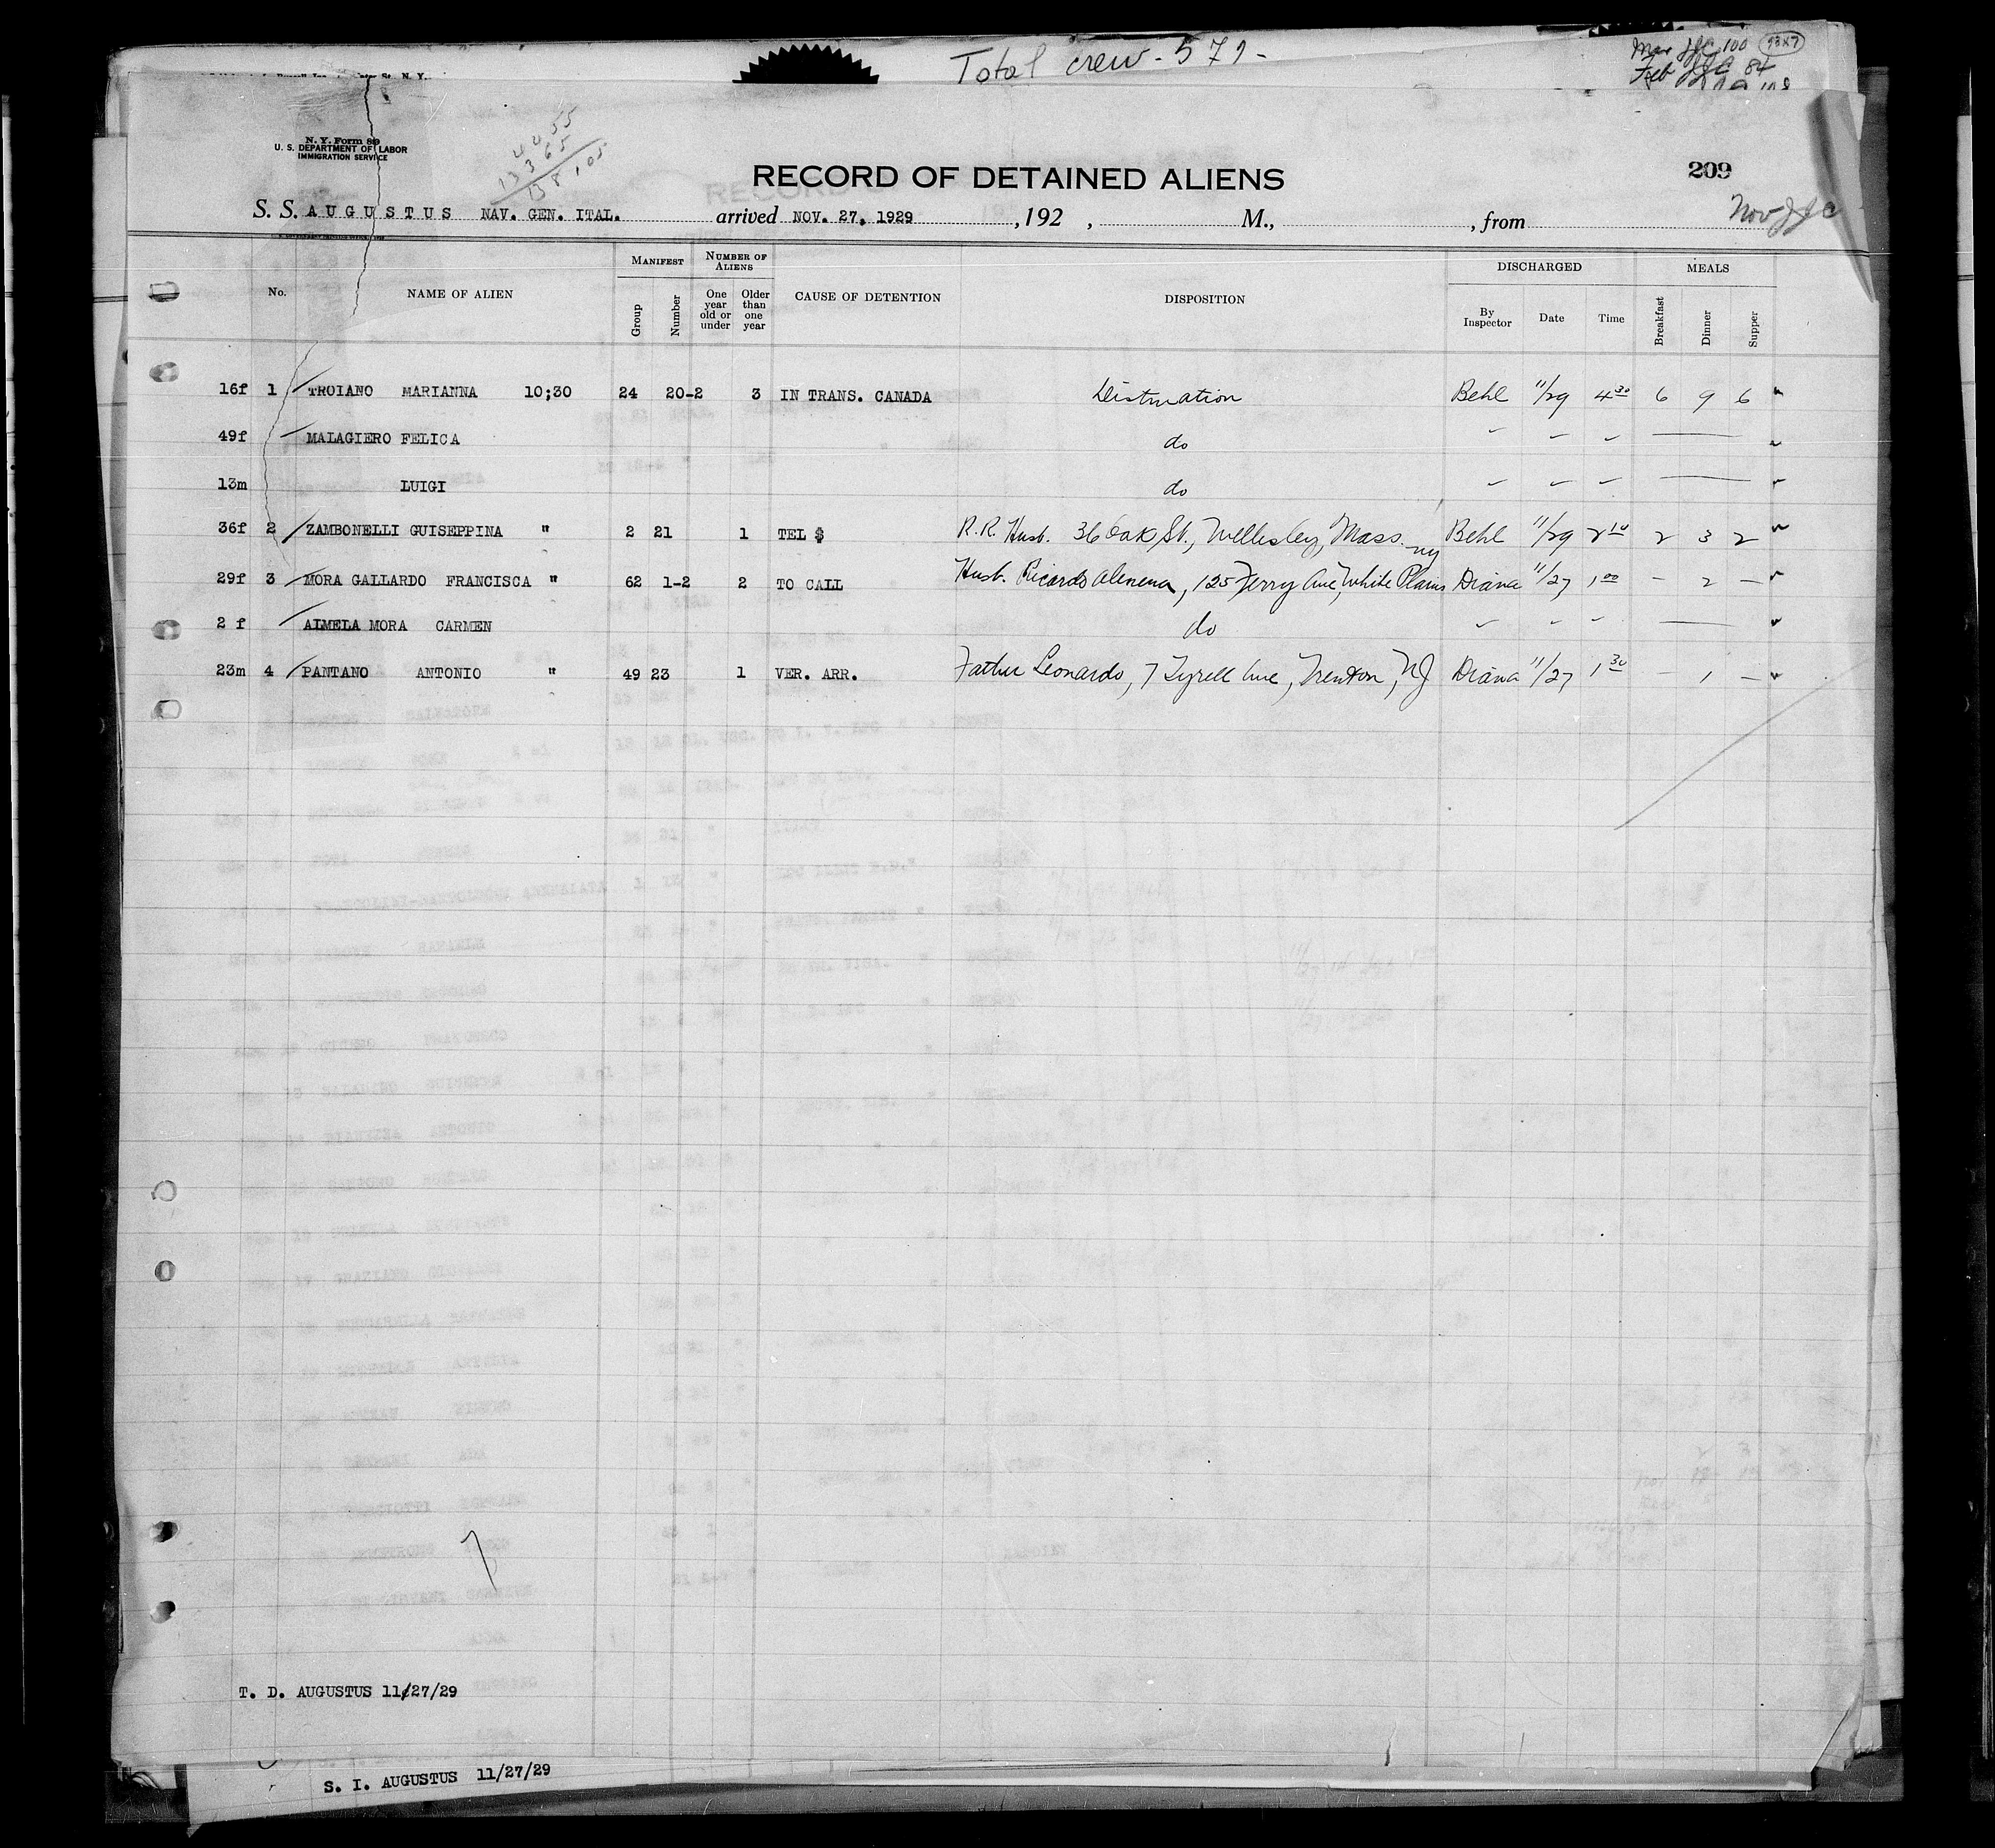 Total crew - 571 -
Mar JJC 100 93x7
Feb JJC 84
N. Y. Form 89
U. S. DEPARTMENT OF LABOR
IMMIGRATION SERVICE
44 55
13 3 65
138,05
RECORD OF DETAINED ALIENS
209
S. S. AUGUSTUS NAV. GEN. ITAL. arrived NOV. 27, 1929 , 192 , M., , from
Nov JJC
No. NAME OF ALIEN MANIFEST Group Number NUMBER OF ALIENS One year old or under Older than one year CAUSE OF DETENTION DISPOSITION DISCHARGED By Inspector Date Time MEALS Breakfast Dinner Supper
16f 1 TROIANO MARIANNA 10;30 24 20-2 3 IN TRANS. CANADA Distination Behl 11/29 4 30 6 9 6
49f MALAGIERO FELICA do
13m LUIGI do
36f 2 ZAMBONELLI GUISEPPINA " 2 21 1 TEL $ R.R. Husb. 36 Oak St., Wellesley, Mass. Behl 11/29 2 10 2 3 2
NY
29f 3 MORA GALLARDO FRANCISCA " 62 1-2 2 TO CALL Husb. Ricardo , 125 Ferry Ave, White Plains Diana 11/27 1 00 - 2 -
2 f AIMELA MORA CARMEN do
23m 4 PANTANO ANTONIO " 49 23 1 VER. ARR. Father Leonardo, 7 Tyrell Ave, Trenton, NJ Diana 11/27 1 30 - 1 -
7
T. D. AUGUSTUS 11/27/29
S. I. AUGUSTUS 11/27/29